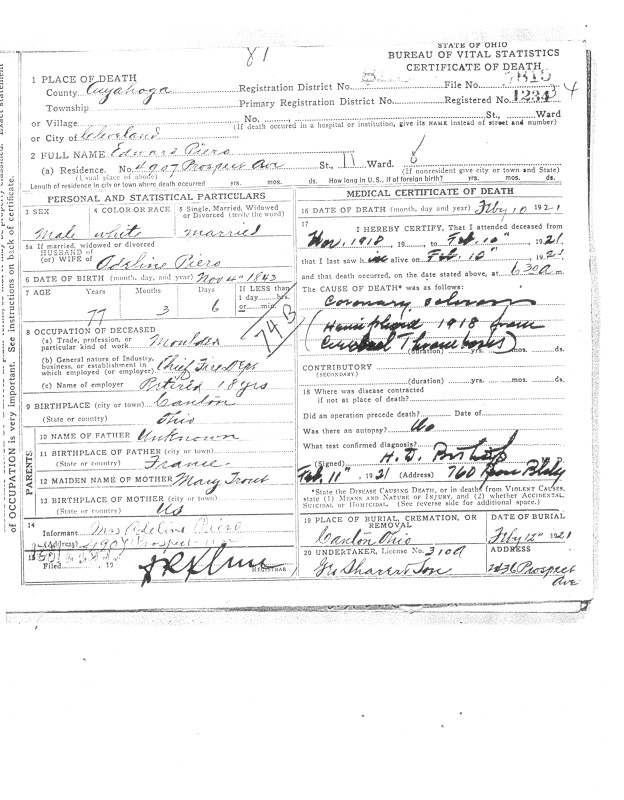 81
STATE OF OHIO
BUREAU OF VITAL STATISTICS
CERTIFICATE OF DEATH
1 PLACE OF DEATH
County Cuyahoga
Registration District No. File No. 7815
Township
Primary Registration District No. Registered No. 1234
or Village
No. St., Ward
(If death occurred in a hospital or institution, give its NAME instead of street and number)
or City of Cleveland
2 FULL NAME Edward Piero
(a) Residence. No. 4907 Prospect Ave St., Ward.
(Usual place of abode) (If nonresident give city or town and State)
Length of residence in city or town where death occurred yrs. mos. ds. How long in U.S., if of foreign birth? yrs. mos. ds.
PERSONAL AND STATISTICAL PARTICULARS
3 SEX 4 COLOR OR RACE 5 Single, Married, Widowed or Divorced (write the word)
Male white married
5a If married, widowed or divorced
HUSBAND of
(or) WIFE of Adeline Piero
6 DATE OF BIRTH (month, day, and year) Nov 4" 1843
7 AGE Years Months Days If LESS than
1 day, hrs.
or min.
77 3 6
74 B
8 OCCUPATION OF DECEASED
(a) Trade, profession, or
particular kind of work Moulder
(b) General nature of Industry,
business, or establishment in
which employed (or employer) Chief Fire Dept
(c) Name of employer Retired 18 yrs
9 BIRTHPLACE (city or town) Canton
(State or country) Ohio
PARENTS
10 NAME OF FATHER Unknown
11 BIRTHPLACE OF FATHER (city or town)
(State or country) France
12 MAIDEN NAME OF MOTHER Mary Trout
13 BIRTHPLACE OF MOTHER (city or town)
(State or country) US
14
Informant Mrs Adeline Piero
(Address) 4907 Prospect
15
Filed , 19
REGISTRAR
MEDICAL CERTIFICATE OF DEATH
16 DATE OF DEATH (month, day and year) Feby 10 1921
17
I HEREBY CERTIFY, That I attended deceased from
Nov. 1918, 19 , to Feb. 10", 1921
that I last saw him alive on Feb. 10", 1921
and that death occurred, on the date stated above, at 630a m.
The CAUSE OF DEATH* was as follows:
Coronary
(Hemiplegia 1918 from
Cerebral Thrombosis)
(duration) yrs. mos. ds.
CONTRIBUTORY
(SECONDARY)
(duration) yrs. mos. ds.
18 Where was disease contracted
if not at place of death?
Did an operation precede death? Date of
Was there an autopsy? No
What test confirmed diagnosis?
(Signed) H. D. Bishop
Feb. 11", 1921 (Address) 760 Rose Bldg
*State the DISEASE CAUSING DEATH, or in death from VIOLENT CAUSES, state (1) MEANS AND NATURE OF INJURY, and (2) whether ACCIDENTAL, SUICIDAL or HOMICIDAL. (See reverse side for additional space.)
19 PLACE OF BURIAL, CREMATION, OR REMOVAL DATE OF BURIAL
Canton Ohio Feby 12" 1921
20 UNDERTAKER, License No. 310a ADDRESS
Sharer & Son
Prospect
Ave
of OCCUPATION is very important. See instructions on back of certificate.
Exact statement